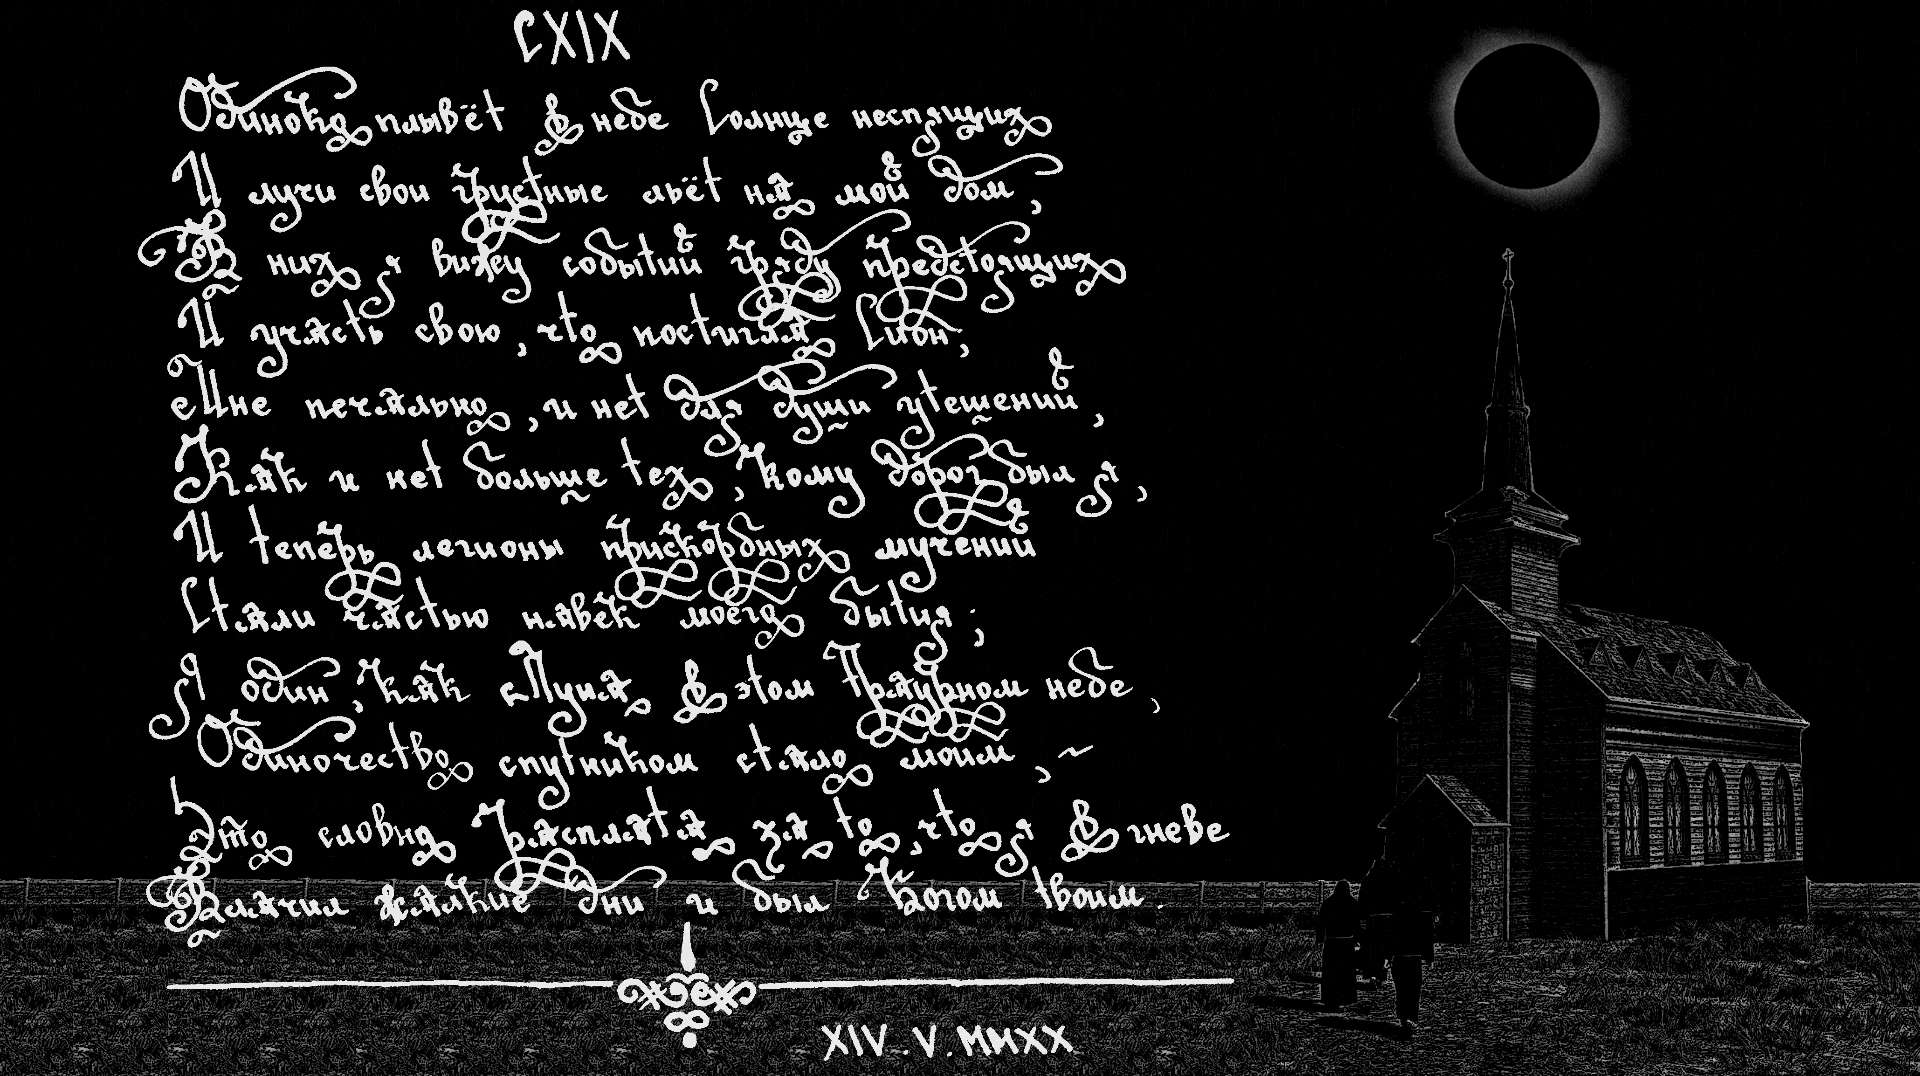 CXIX
Одиноко плывёт в небе Солнце неспящих
И лучи свои грустные льёт на мой дом,
В них я вижу событий гряду предстоящих
И участь свою, что постигла Сион,
Мне печально, и нет для души утешений,
Как и нет больше тех, кому дорог был я,
И теперь легионы прискорбных мучений
Стали частью навек моего бытия;
Я один, как Луна в этом Траурном небе,
Одиночество спутником стало моим, ~
Это словно расплата за то, что я в гневе
Влачил жалкие дни и был Богом твоим.
XIV.V.MMXX